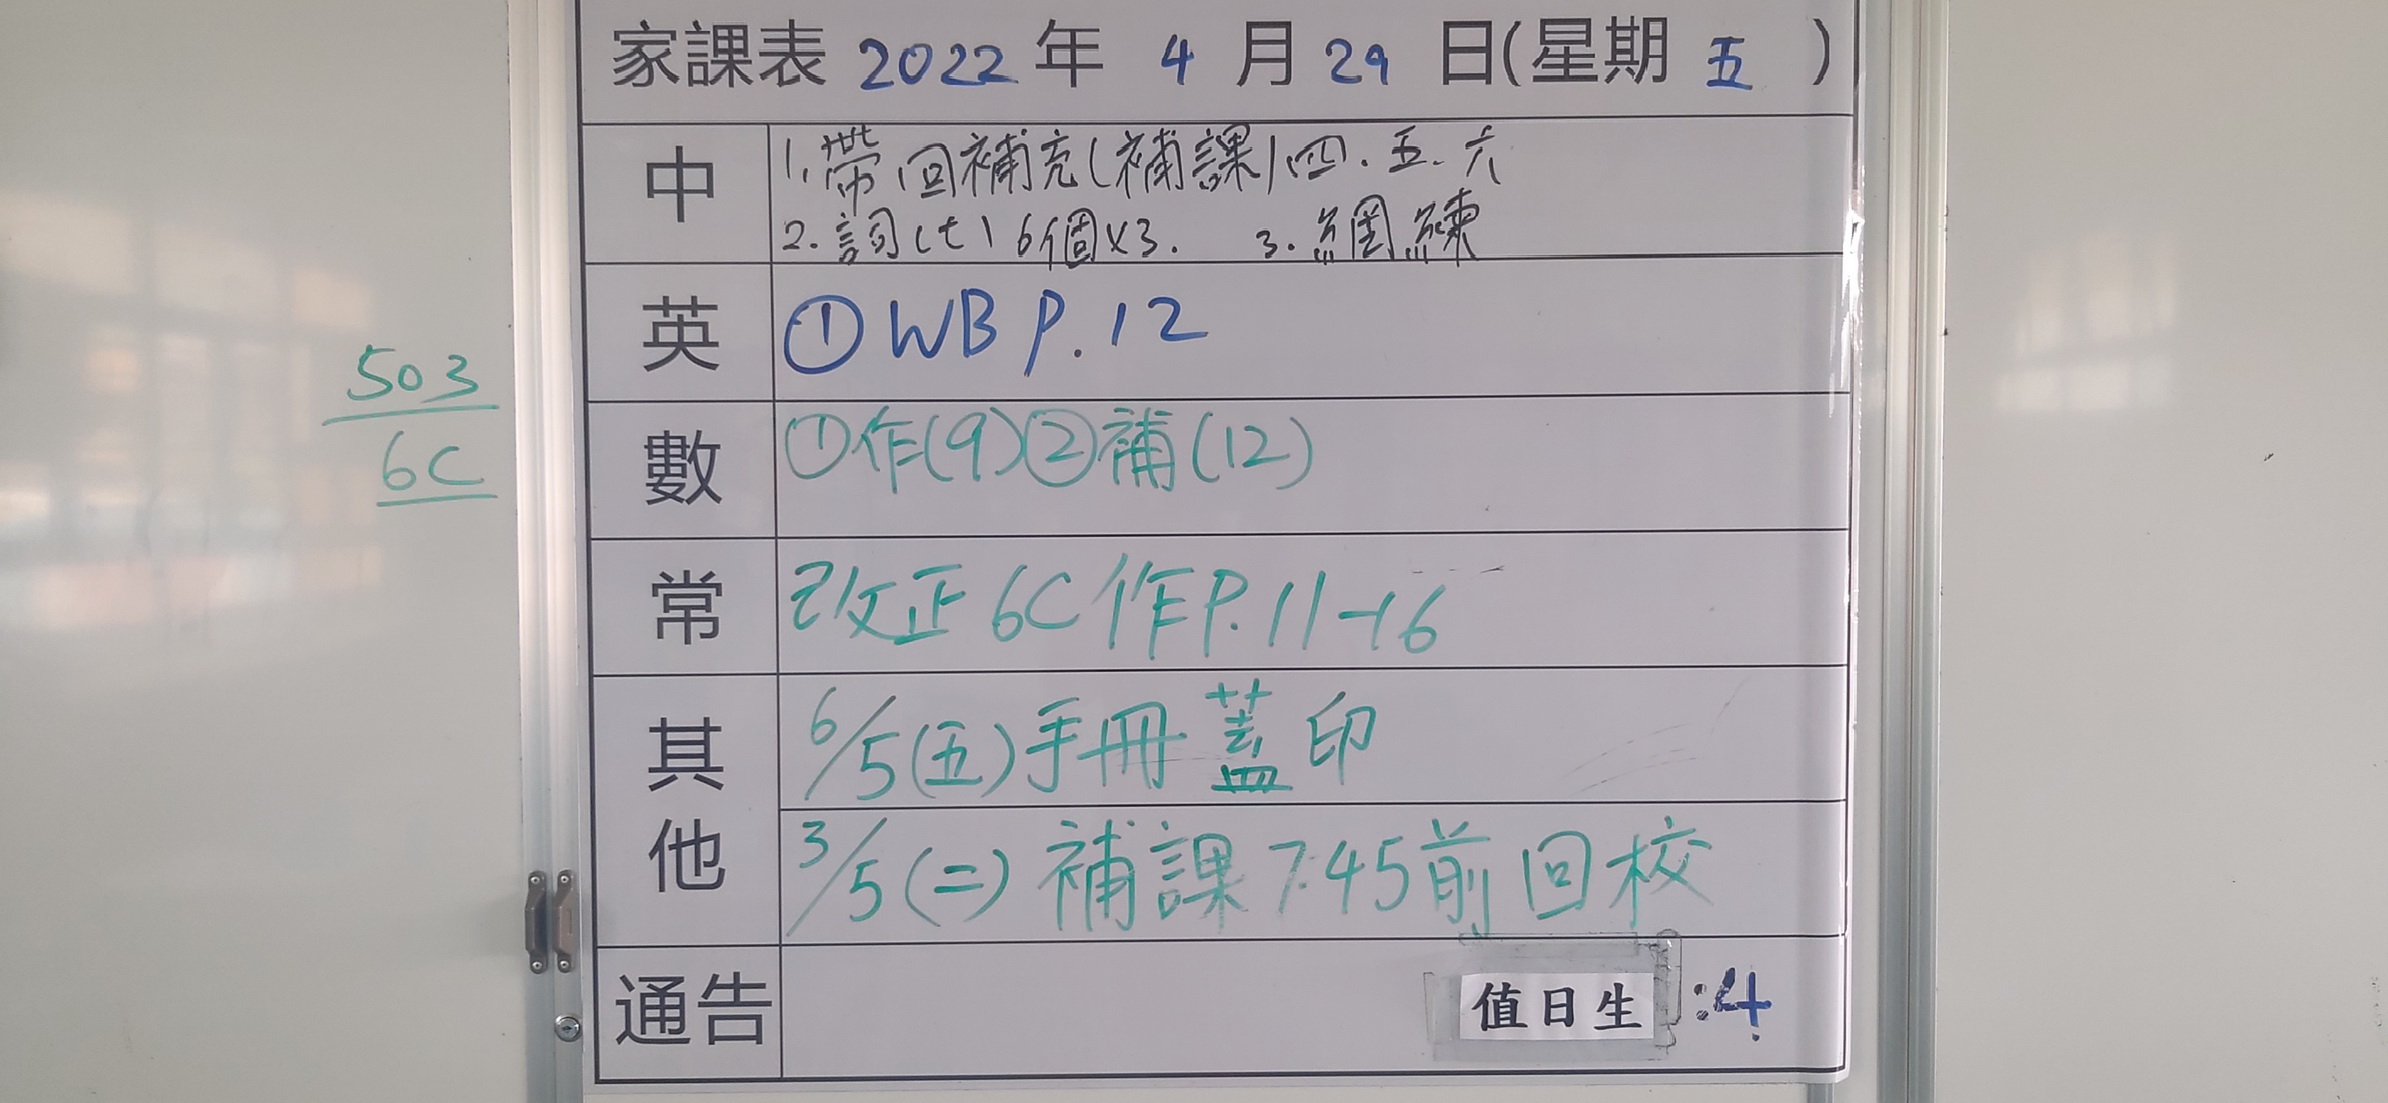 家課表 2022 年 4 月 29 日(星期 五 )
中
1. 帶回補充(補課)四.五.六
2. 詞(七)6個x3. 3. 網練
英
①WB P.12
503
6C
數
①作(9)②補(12)
常
改正6C作P.11-16
其他
6/5(五)手冊蓋印
3/5(二)補課7:45前回校
通告
值日生:4